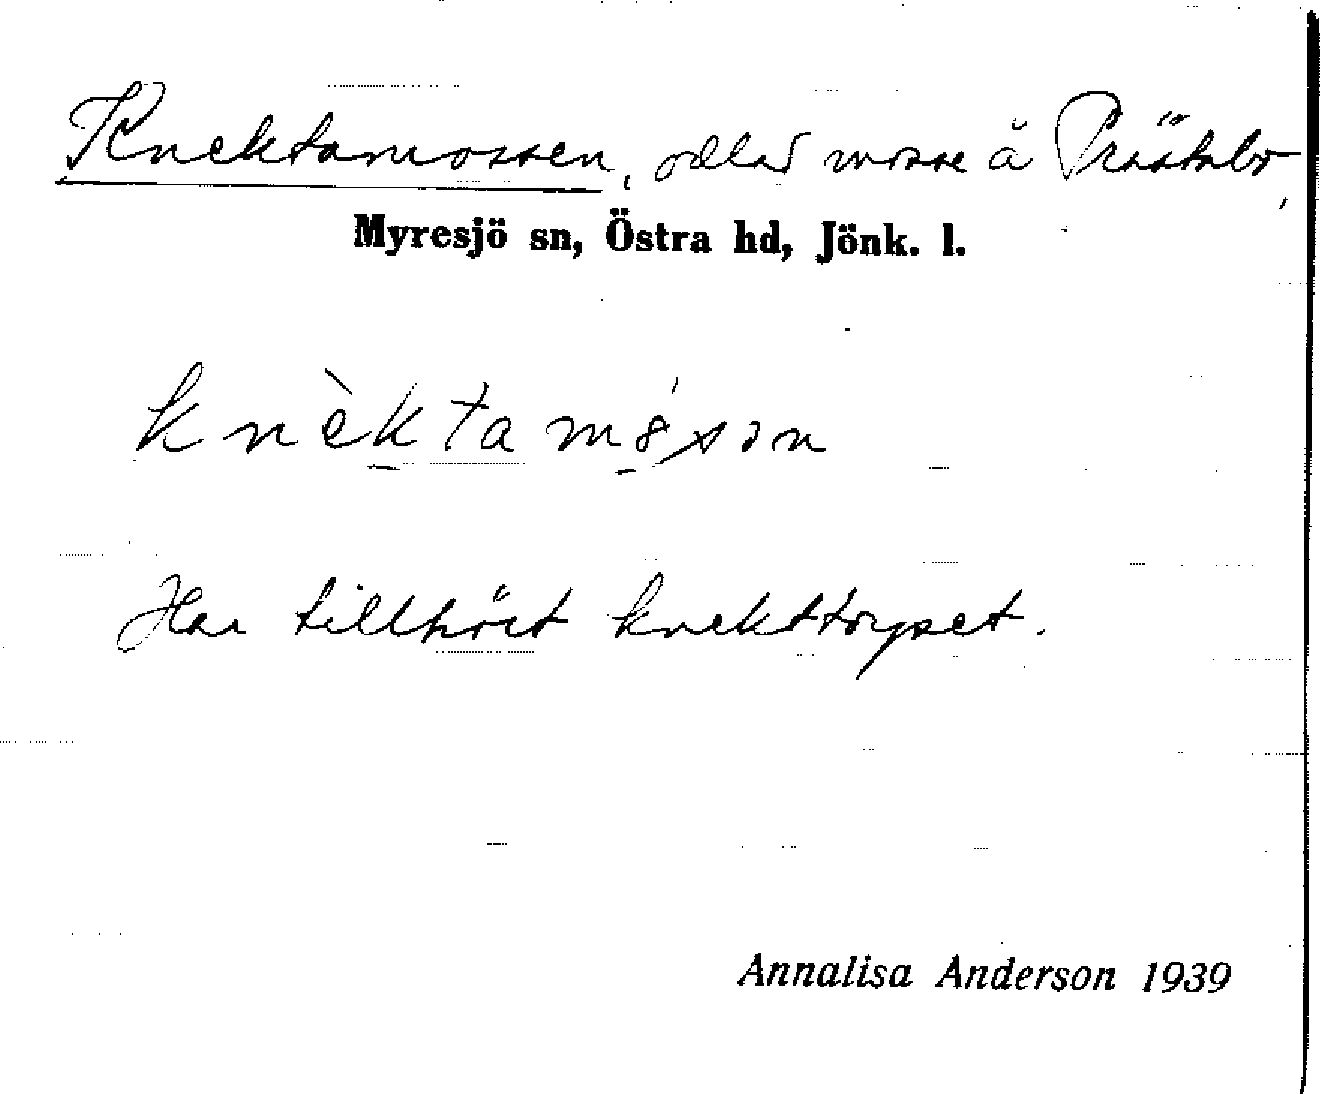 Knektamossen, odlad mosse å Prästabo,
Myresjö sn, Östra hd, Jönk. l.
knèktamósən
Har tillhört knekttorpet.
Annalisa Anderson 1939